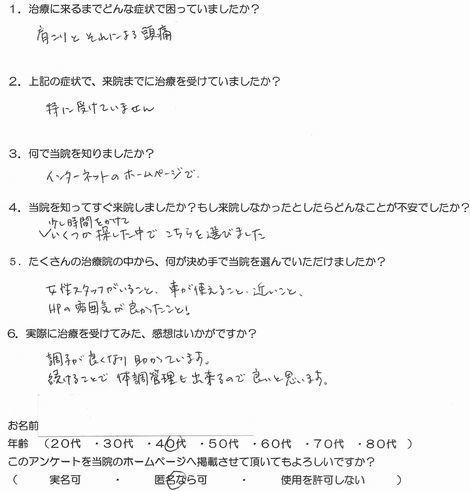 1．治療に来るまでどんな症状で困っていましたか？
肩こりとそれによる頭痛
2．上記の症状で、来院までに治療を受けていましたか？
特に受けていません
3．何で当院を知りましたか？
インターネットのホームページで.
4．当院を知ってすぐ来院しましたか？もし来院しなかったとしたらどんなことが不安でしたか？
少し時間をかけて
いくつか探した中でこちらを選びました
5．たくさんの治療院の中から、何が決め手で当院を選んでいただけましたか？
女性スタッフがいること、車が使えること、近いこと、
HPの雰囲気が良かったこと!
6．実際に治療を受けてみた、感想はいかがですか？
調子が良くなり助かっています。
続けることで体調管理も出来るので良いと思います。
お名前
年齢 （20代 ・30代 ・40代 ・50代 ・60代 ・70代 ・80代 ）
このアンケートを当院のホームページへ掲載させて頂いてもよろしいですか？
（ 実名可 ・ 匿名なら可 ・ 使用を許可しない ）